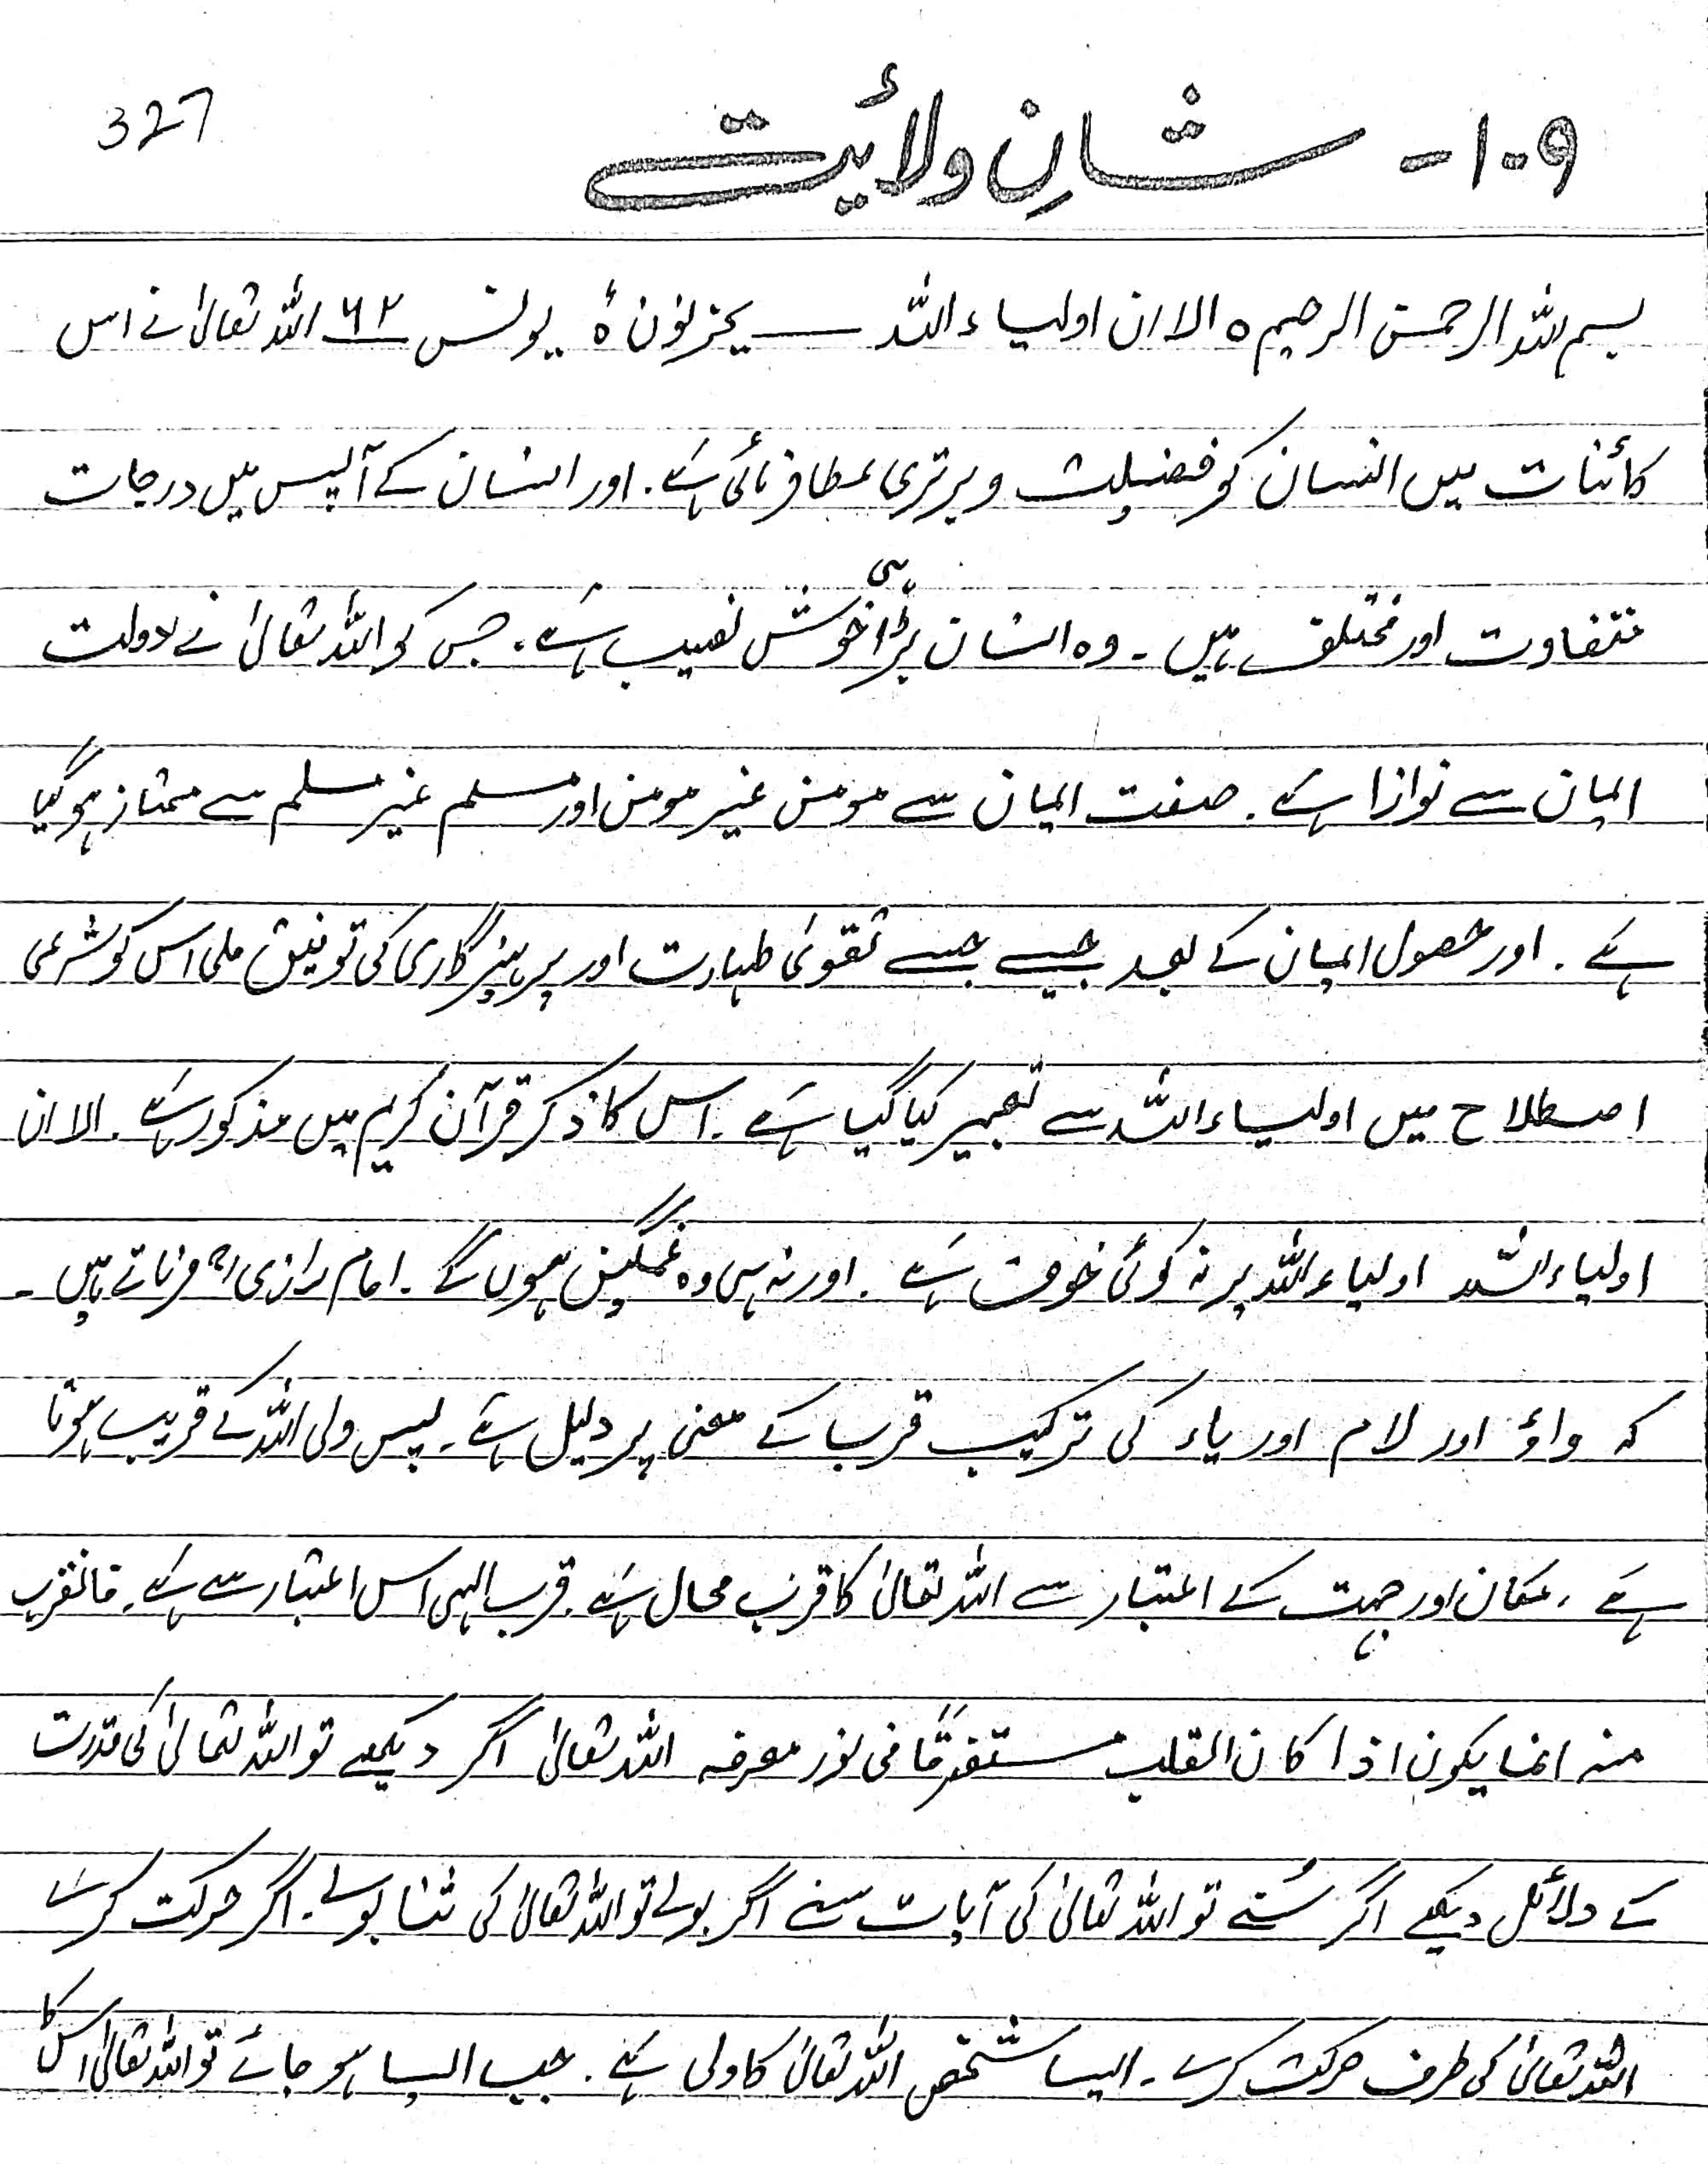 327
۱۰۹- شانِ ولائیت
بسم اللہ الرحمن الرحیم ہ الا ان اولیاء اللہ ــــ یحزنون ہٗ یونس ۶۲ اللہ تعالیٰ نے اس
کائنات میں انسان کو فضیلت و برتری عطا فرمائی ہے۔ اور انسان کے آپس میں درجات
متفاوت اور مختلف ہیں۔ وہ انسان بڑا ہی خوش نصیب ہے۔ جس کو اللہ تعالیٰ نے دولت
ایمان سے نوازا ہے۔ صفت ایمان سے مومن غیر مومن اور مسلم غیر مسلم سے ممتاز ہو گیا
ہے۔ اور حصول ایمان کے بعد جیسے جیسے تقویٰ طہارت اور پرہیزگاری کی توفیق ملی اس کو شرعی
اصطلاح میں اولیاء اللہ سے تعبیر کیا گیا ہے۔ اس کا ذکر قرآن کریم میں مذکور ہے۔ الا ان
اولیاء اللہ اولیاء اللہ پر نہ کوئی خوف ہے۔ اور نہ ہی وہ غمگین ہوں گے۔ امام رازیؒ فرماتے ہیں۔
کہ واؤ اور لام اور یاء کی ترکیب قرب کے معنی پر دلیل ہے۔ پس ولی اللہ کے قریب ہوتا
ہے، مکان اور جہت کے اعتبار سے اللہ تعالیٰ کا قرب محال ہے۔ قرب الہی اس اعتبار سے ہے۔ فالقرب
منہ انما یکون اذا کان القلب مستغرقًا فی نور معرفہ اللہ تعالیٰ اگر دیکھے تو اللہ تعالیٰ کی قدرت
کے دلائل دیکھے اگر سُنے تو اللہ تعالیٰ کی آیات سنے اگر بولے تو اللہ تعالیٰ کی ثنا بولے۔ اگر حرکت کرے
اللہ تعالیٰ کی طرف حرکت کرے۔ ایسا شخص اللہ تعالیٰ کا ولی ہے۔ جب ایسا ہو جائے تو اللہ تعالیٰ اس کا